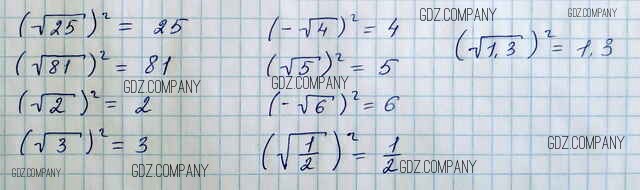 (√25)² = 25
(√81)² = 81
(√2)² = 2
(√3)² = 3
(-√4)² = 4
(√5)² = 5
(-√6)² = 6
(√1/2)² = 1/2
(√1,3)² = 1,3
GDZ.COMPANY
GDZ.COMPANY
GDZ.COMPANY
GDZ.COMPANY
GDZ.COMPANY
GDZ.COMPANY
GDZ.COMPANY
GDZ.COMPANY